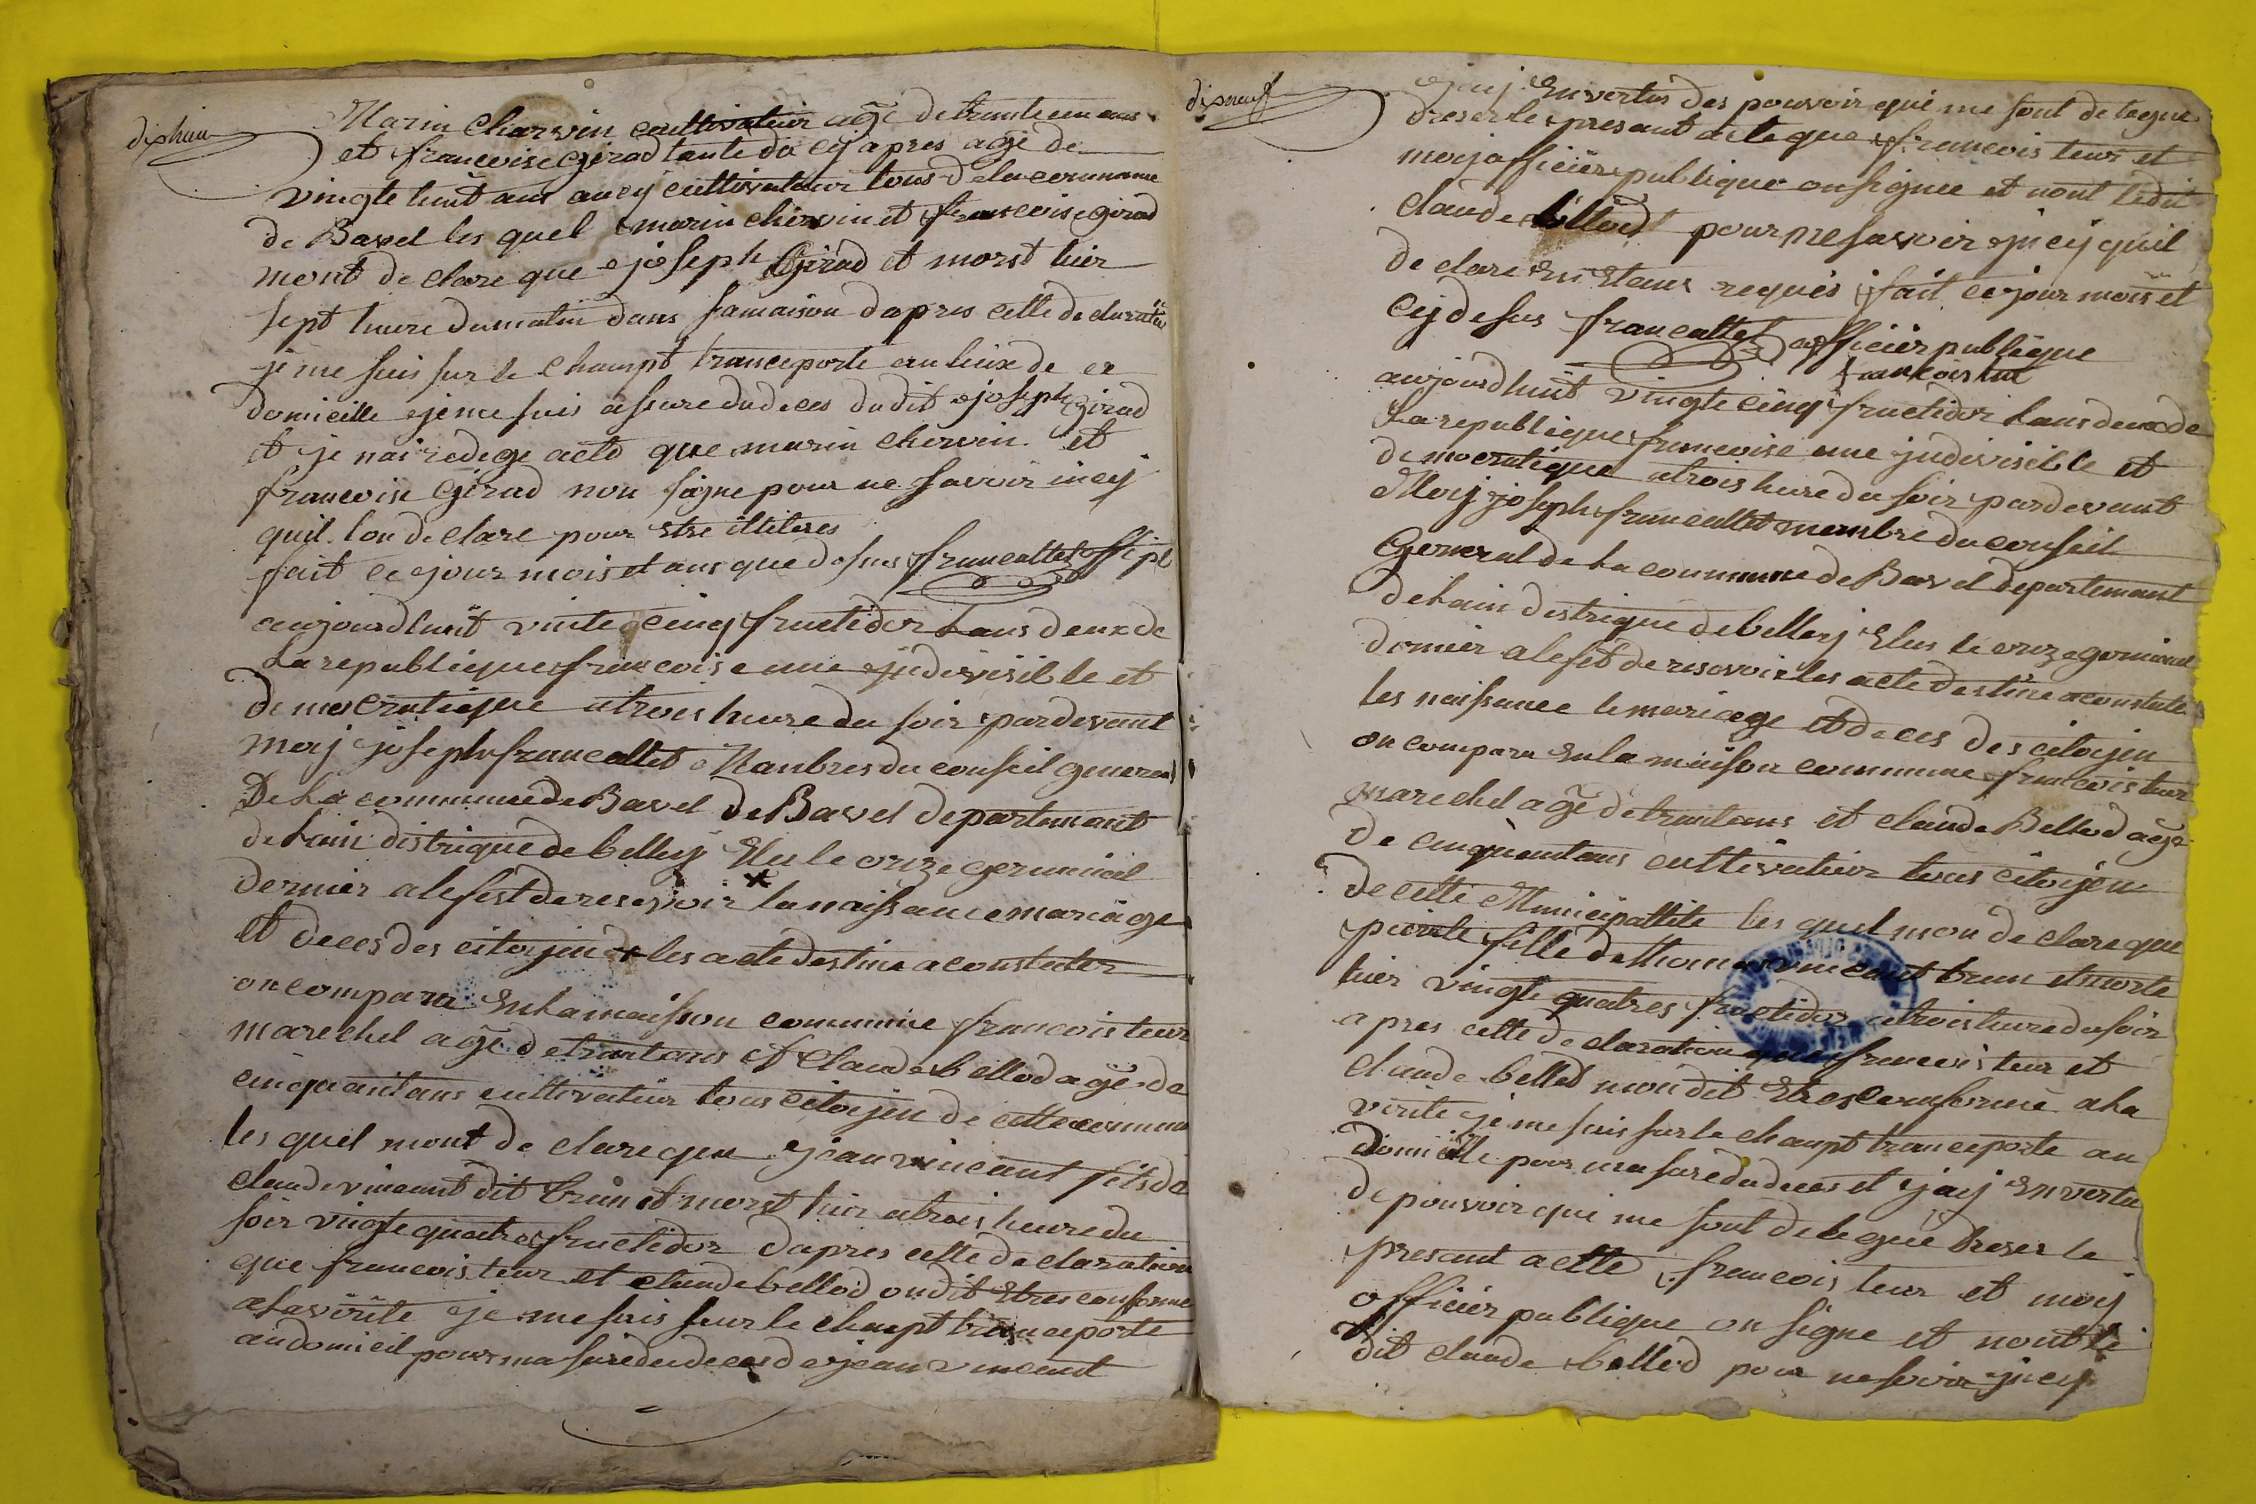 dixhui
Marin Charvin cultivateur agé de trante un ans
et francoise Girad tante du cy apres agé de
vingte huit ans aucy cultivateur tous de la commune
de Bavel les quel marin chervin et francoise girad
mont de clare que joseph Girad et morst hier
sept heure du matin dans sa maison dapres cette de claration
je me suis sur le champt tranceporte au lieux de ce
domicille je me suis assure du deces dudit joseph girad
et je nai redege acte que marin chervin et
francoise Girad non signe pour ne savoir incy
quil lon de clare pour etre illiteres
fait ce jour mois et ans que de sus francallet offi pl
aujourdhuit vinte cinq fructidor lans deux de
La republique francoise une jndivisible et
democratique a trois heure du soir pardevant
moij joseph francallet Manbres du conseil general
De La commune de Bavel de Bavel departemant
de lain distrique de belley Elu le onze germinal
dernier a lefest de resevoir la naissance mariage
et deces des citoyin les acte destine a constater
on compara En la maisson commune francois teur
marechel agé de trantans et Claude bellod agé de
cinquantans cultivateur tous citoijen de cette commune
les quel mont de clare que jean vincant fils de
claude vincant dit brun et morst hier a trois heure du
soir vingte quatre fructidor dapres cette de claration
que francois teur et claude bellod on dit Etres conforme
a la verite je me suis sur le champt tranceporte
au domicil pour ma suré du deces de jean vincant
dixneuf
jaij En vertus des pouvoir qui me sont de legue
dreser le presant acte que francois teur et
moij officier publique on signee et nont ledit
claude bellod pour ne savoir jncij quil
de clare En Etans requis fait ce jour mois et
cij de sus francallet officier publique
francois teur
aujourdhuit vingte cinq fructidor lans deux de
La republique francoise une jndivisible et
democratique a trois hure du soir pardevant
Moij joseph francallet membre du conseil
General de La commune de Bavel departemant
de Lain distrique de belleij Elus le onze germinal
dernier a lefet de resevoir les acte destine a constater
les naissance le mariage et deces des citoijen
on compara En la maison commune francois teur
marechel agé de trantans et claude Bellod agé
de cinquantans cultivateur tous citoijen
de cette Municipallite les quel mon de clare que
pierete fille de thomas vincant brun et morte
hier vingte quatres fructidor a trois heure du soir
a pres cette de claration que francois teur et
claude bellod mon dit Etres conforme a la
verite je me suis sur le champt tranceporte au
Domicille pour ma suré du deces et jaij En vertu
de pouvoir qui me sont de legué dreser le
presant actte francois teur et moij
officier publique on signe et nont le
dit claude bellod pour ne savoir jncij